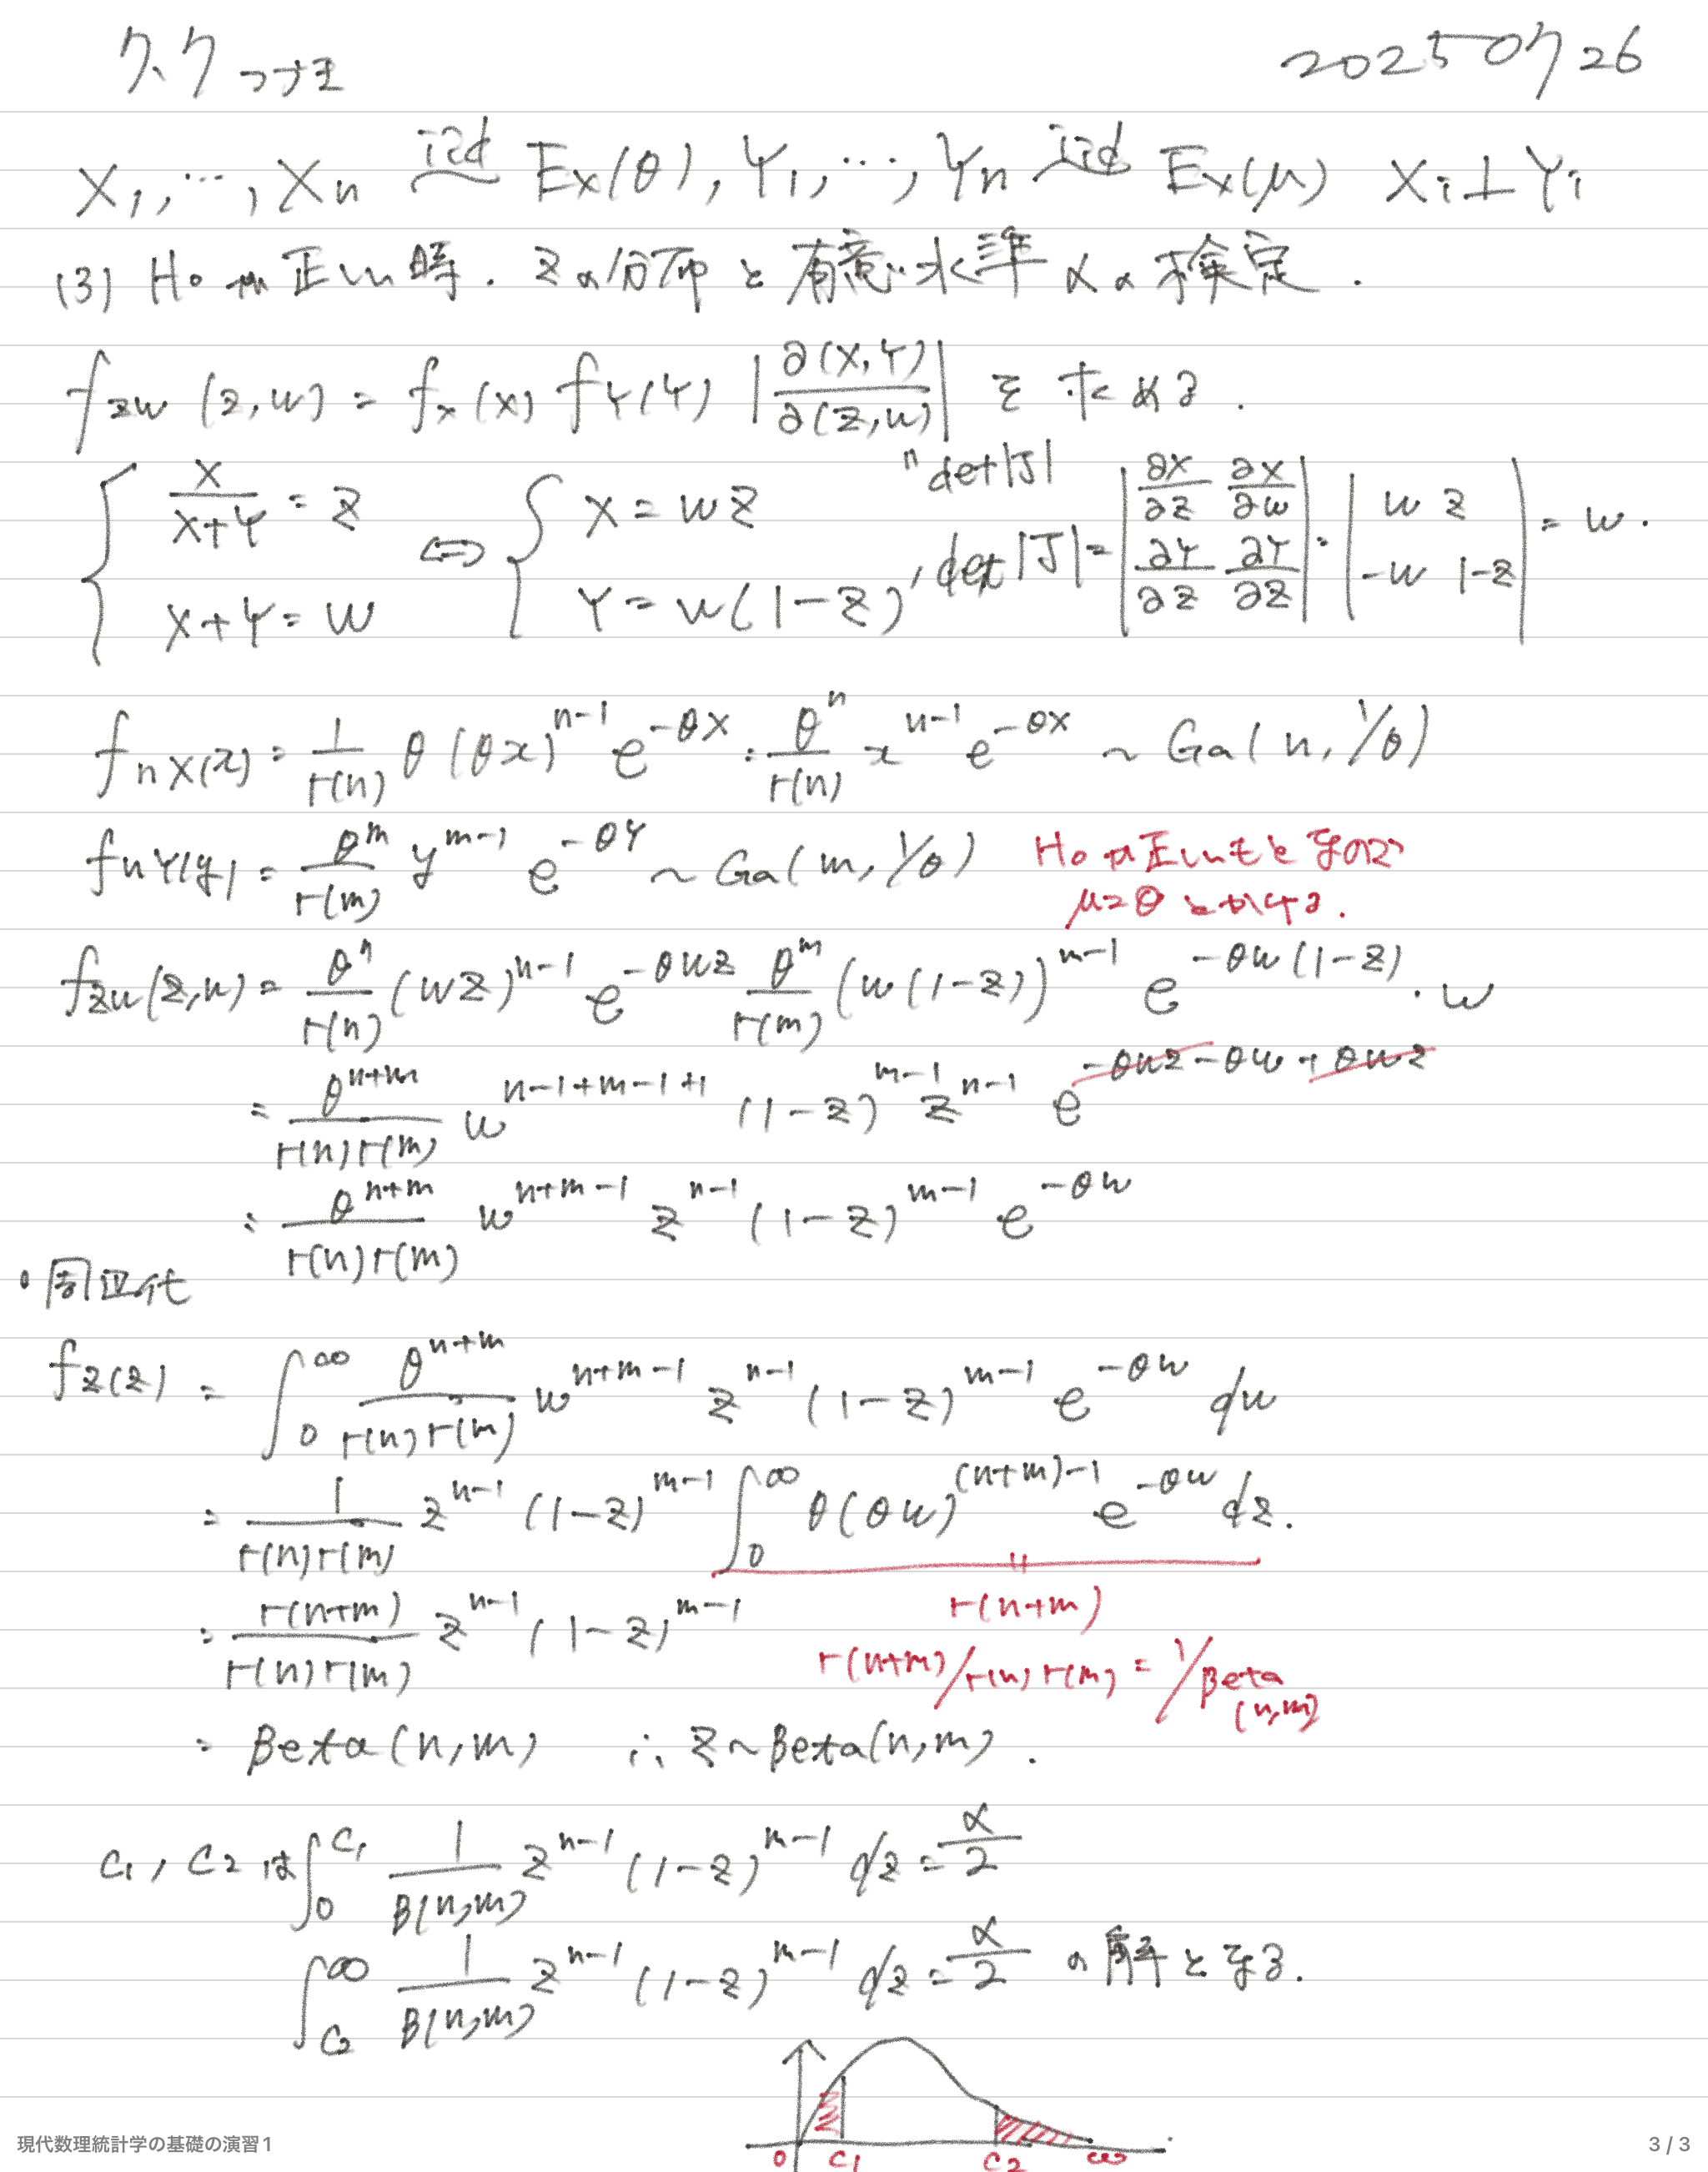 20250726
X₁, ⋯, Xₙ iid~ Ex(θ), Y₁, ⋯, Yₙ iid~ Ex(μ) Xᵢ⊥Yᵢ
(3) H₀が正しい時. Zの分布と有意水準αの検定.
f_{ZW}(z,w) = f_X(x) f_Y(Y) |∂(X,Y)/∂(Z,W)| を求める.
" det|J|
{ X/(X+Y) = Z, X+Y = W ⇔ { X = WZ, Y = W(1−Z), det|J| = |∂X/∂Z ∂X/∂W ; ∂Y/∂Z ∂Y/∂Z| = |W Z ; −W 1−Z| = W.
f_{nX}(x) = 1/Γ(n) θ(θx)^{n−1} e^{−θX} = θ^n/Γ(n) x^{n−1} e^{−θX} ~ Ga(n, 1/θ)
f_{nY}(y) = θ^m/Γ(m) y^{m−1} e^{−θY} ~ Ga(m, 1/θ) H₀が正しいもとなので
μ=θとかける.
f_{ZW}(Z,W) = θ^n/Γ(n) (WZ)^{n−1} e^{−θWZ} θ^m/Γ(m) (W(1−Z))^{m−1} e^{−θW(1−Z)} · W
= θ^{n+m}/Γ(n)Γ(m) W^{n−1+m−1+1} (1−Z)^{m−1} Z^{n−1} e^{−θWZ−θW+θWZ}
= θ^{n+m}/Γ(n)Γ(m) W^{n+m−1} Z^{n−1} (1−Z)^{m−1} e^{−θW}
・周辺化
f_Z(Z) = ∫₀^∞ θ^{n+m}/Γ(n)Γ(m) W^{n+m−1} Z^{n−1} (1−Z)^{m−1} e^{−θW} dW
= 1/Γ(n)Γ(m) Z^{n−1} (1−Z)^{m−1} ∫₀^∞ θ(θW)^{(n+m)−1} e^{−θW} dZ.
= Γ(n+m)/Γ(n)Γ(m) Z^{n−1} (1−Z)^{m−1} " Γ(n+m)
Γ(n+m)/Γ(n)Γ(m) = 1/Beta(n,m)
= Beta(n,m) ∴ Z~Beta(n,m).
C₁, C₂ は ∫₀^{C₁} 1/B(n,m) Z^{n−1} (1−Z)^{m−1} dZ = α/2
∫_{C₂}^∞ 1/B(n,m) Z^{n−1} (1−Z)^{m−1} dZ = α/2 の解となる.
0 C₁ C₂ ∞
現代数理統計学の基礎の演習1
3 / 3